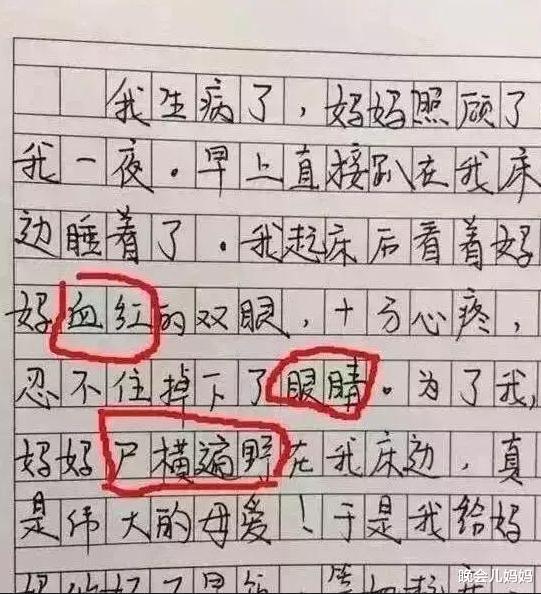 我生病了，妈妈照顾了
我一夜。早上直接趴在我床
边睡着了。我起床后看着妈
妈血红的双眼，十分心疼，
忍不住掉下了眼睛。为了我，
妈妈尸横遍野在我床边，真
是伟大的母爱！于是我给妈
晚会儿妈妈